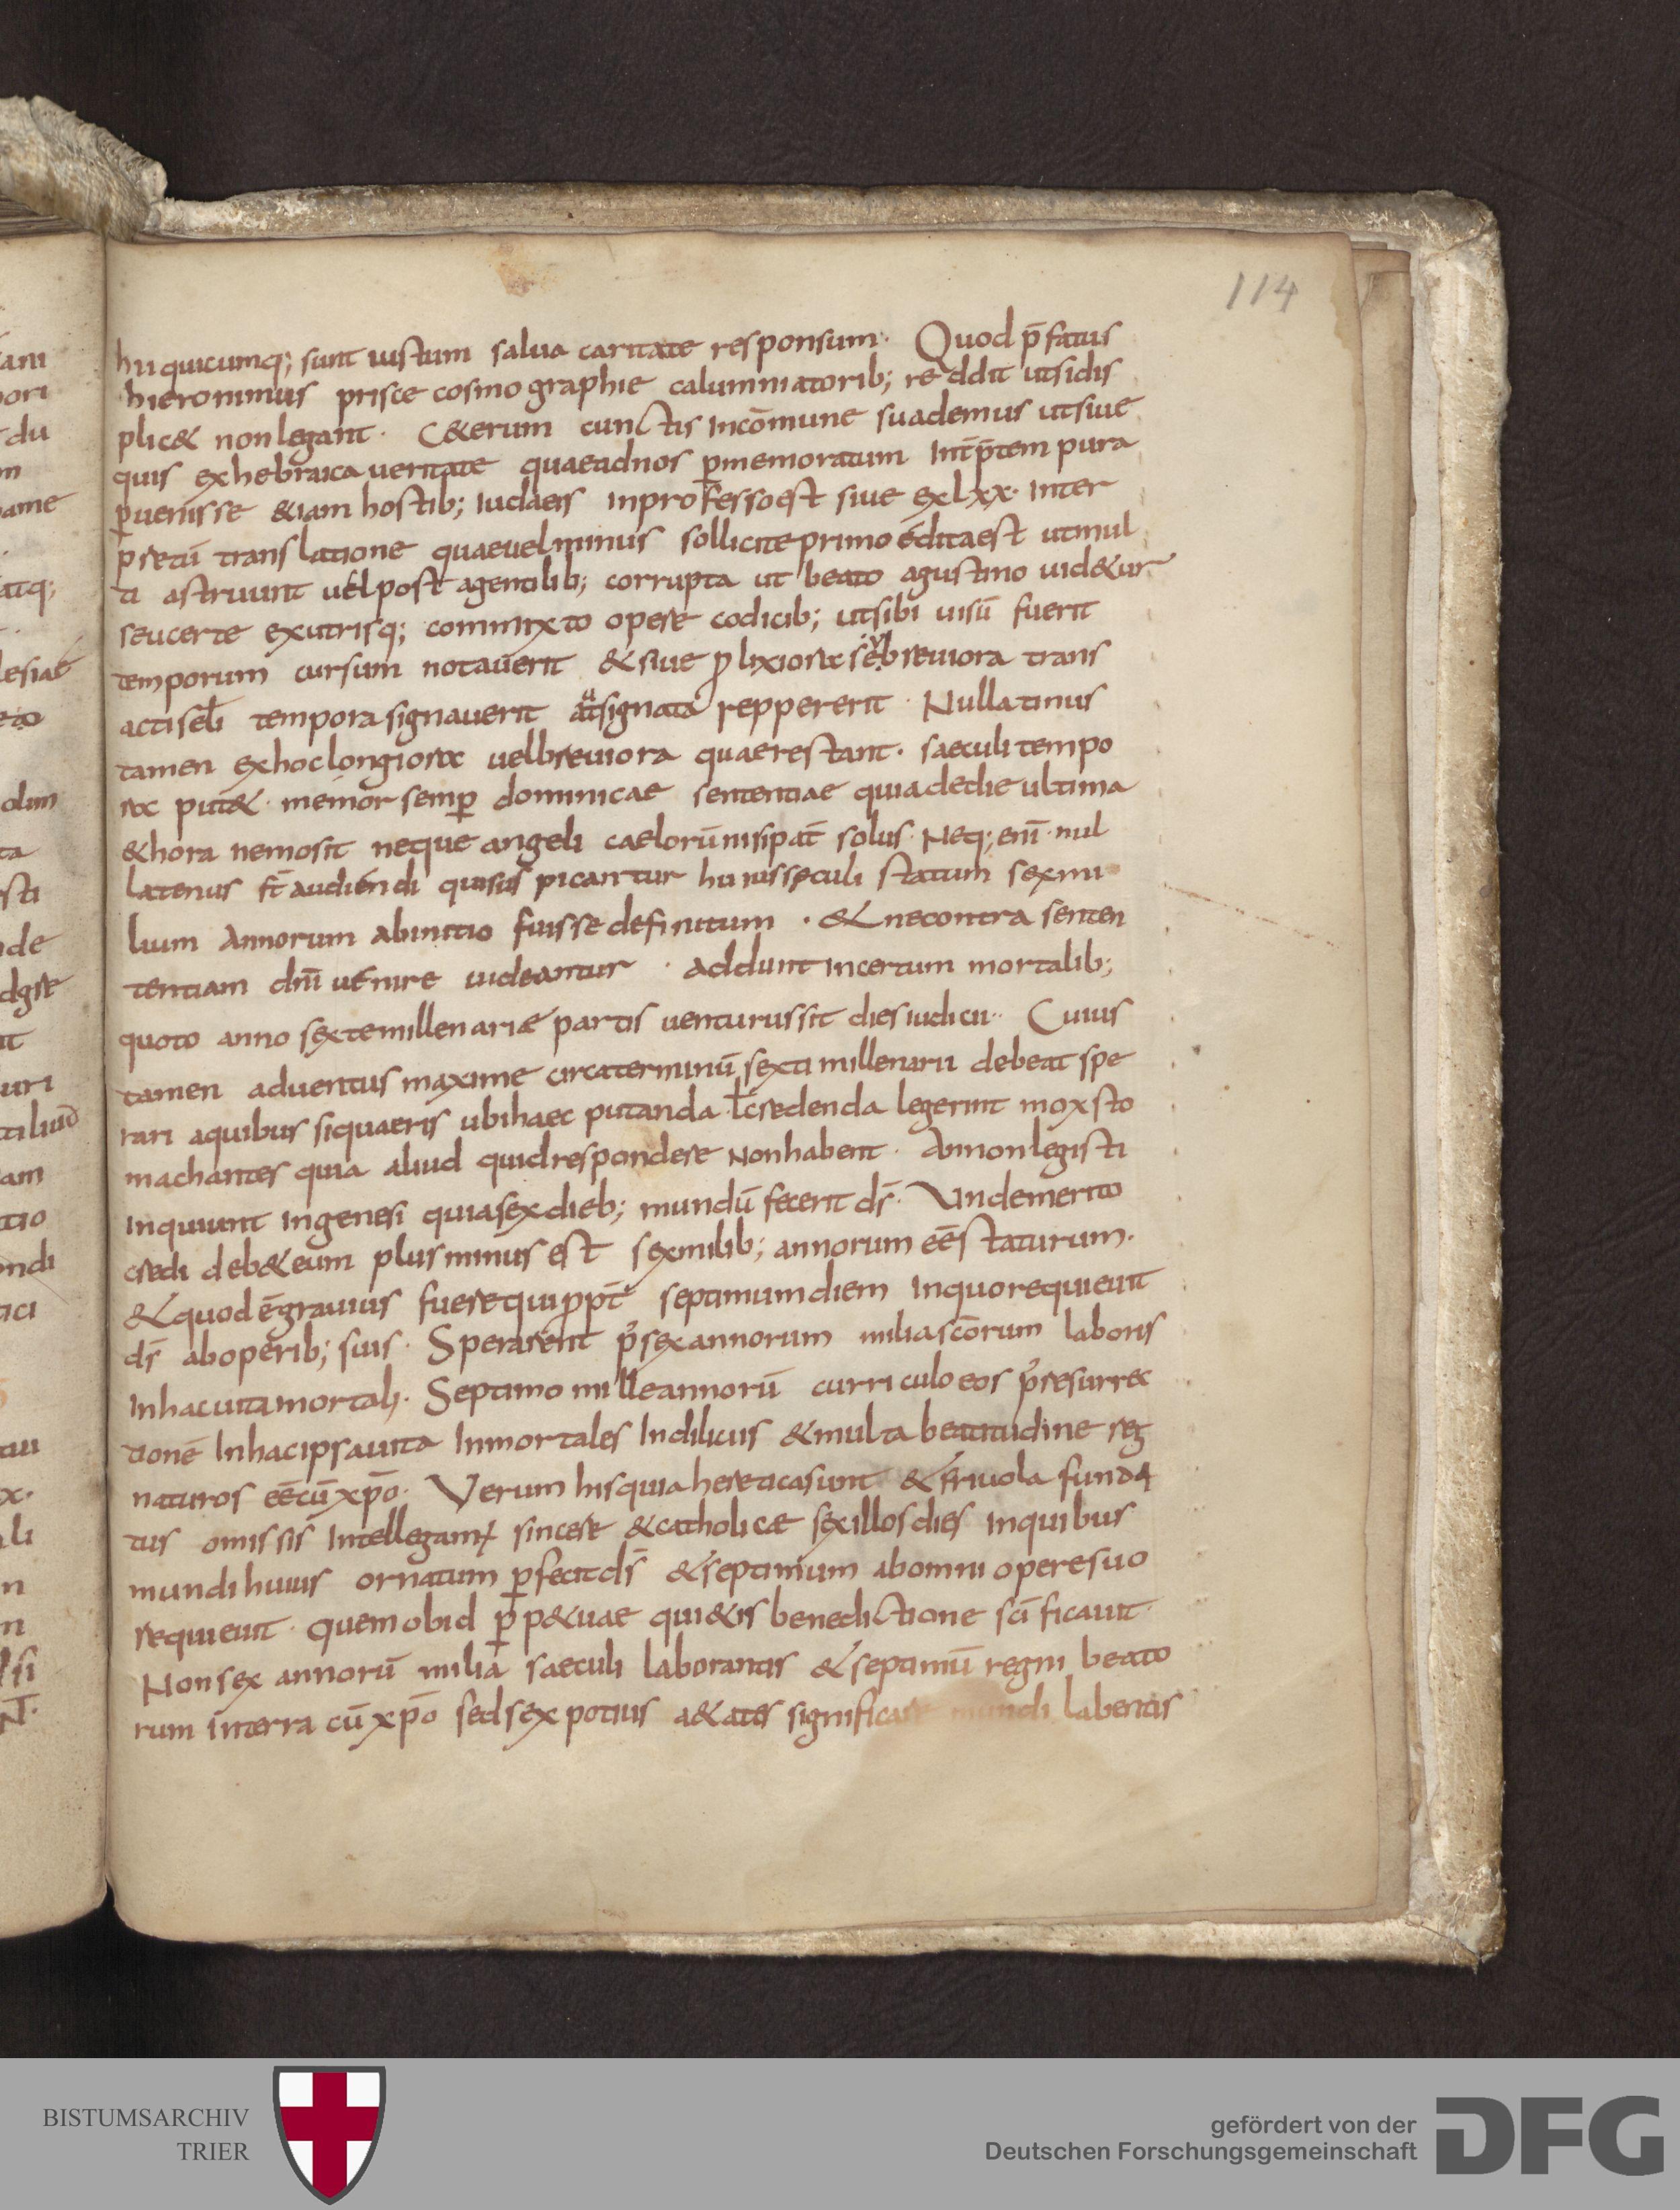 114
hii quicumq; sunt iustum salua caritate responsum· Quod p̄fatus
hieronimus prisce cosmographie calumniatorib; reddit utsidis
plic& nonlegant· C&erum cunctis incōmune suademus utsiue
quis exhebraica ueritate quaeadnos p̲memoratum int̄p̄tem pura
p̲uenisse &iam hostib; iudaeis inprofessoest siue exlxx· inter
p̲retū translatione quaeuelminus sollicite primo éditaest utmul
ti astruunt uelpost agentilib; corrupta ut beato agustino uid&ur
seucerte exutrisq; commixto opere codicib; utsibi uisū fuerit
temporum cursum notauerit &siue ꝓlixiora seubreuiora trans
actisęli tempora signauerit autsignatareppererit · Nullatinus
tamen exhoclongiora uelbreuiora quaerestant· saeculi tempo
ra put& · memor semp̲ dominicae sententiae quiadedie ultima
&hora nemosit neque angeli caelorūnisipat̄ solus· Neq; enī · nul
latenus st̄ audiendi quisus picantur huiusseculi statum sexmi
lium annorum abinitio fuissedefinitum · &necontra senten
tentiam dn̄i uenire uideantur · addunt incertum mortalib;
quoto anno sextemillenariæ partis uenturussit diesiudicii·· Cuius
tamen aduentus maxime circaterminū sexti millenarii debeat spe
rari aquibus siquaeris ubihaec putanda ·ł credenda legerint mox sto
machantes quia aliud quidrespondere nonhabent · Annonlegisti
inquiunt ingenesi quiasexdieb; mundū fecerit ds̄· Vndemerito
credi deb&eum plus minus est sexmilib; annorum eēstaturum·
&quodēgrauius fuerequi ꝓpt̄ septimumdiem inquorequieuit
ds̄ aboperib; suis· Sperarent p᷒sexannorum miliascōrum laboris
inhacuitamortali· Septimo milleannorū curriculo eos p᷒resurrec
tionē inhacipsauita inmortales indiliciis &multa beatitudine reg
naturos eēcūxp̄o· Verum hisquia hereticasunt &friuola fundа
tus omissis intellegamꝰ sincere &catholicæ sexillosdies inquibus
mundihuius ornatum p̲fecitds̄ &septimum abomni operesuo
requieuit· quemobid p̲p&uae qui&is benedictione scīficauit·
Nonsex annorū milia saeculi laborantis &septimū regni beato
rum interra cū xp̄o sedsex potius a&ates significare mundi labentis
BISTUMSARCHIV
TRIER
gefördert von der
Deutschen Forschungsgemeinschaft
DFG